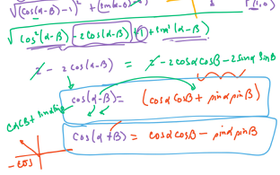 √(cos(α-β)-1)² + (sin(α-β)
√cos²(α-β) - 2cos(α-β) + 1 + sin²(α-β)
2 - 2cos(α-β) = 2 - 2cosαcosβ - 2sinαsinβ
cos(α-β) = (cosαcosβ + sinαsinβ
cos(α+β) = cosαcosβ - sinαsinβ
-cos